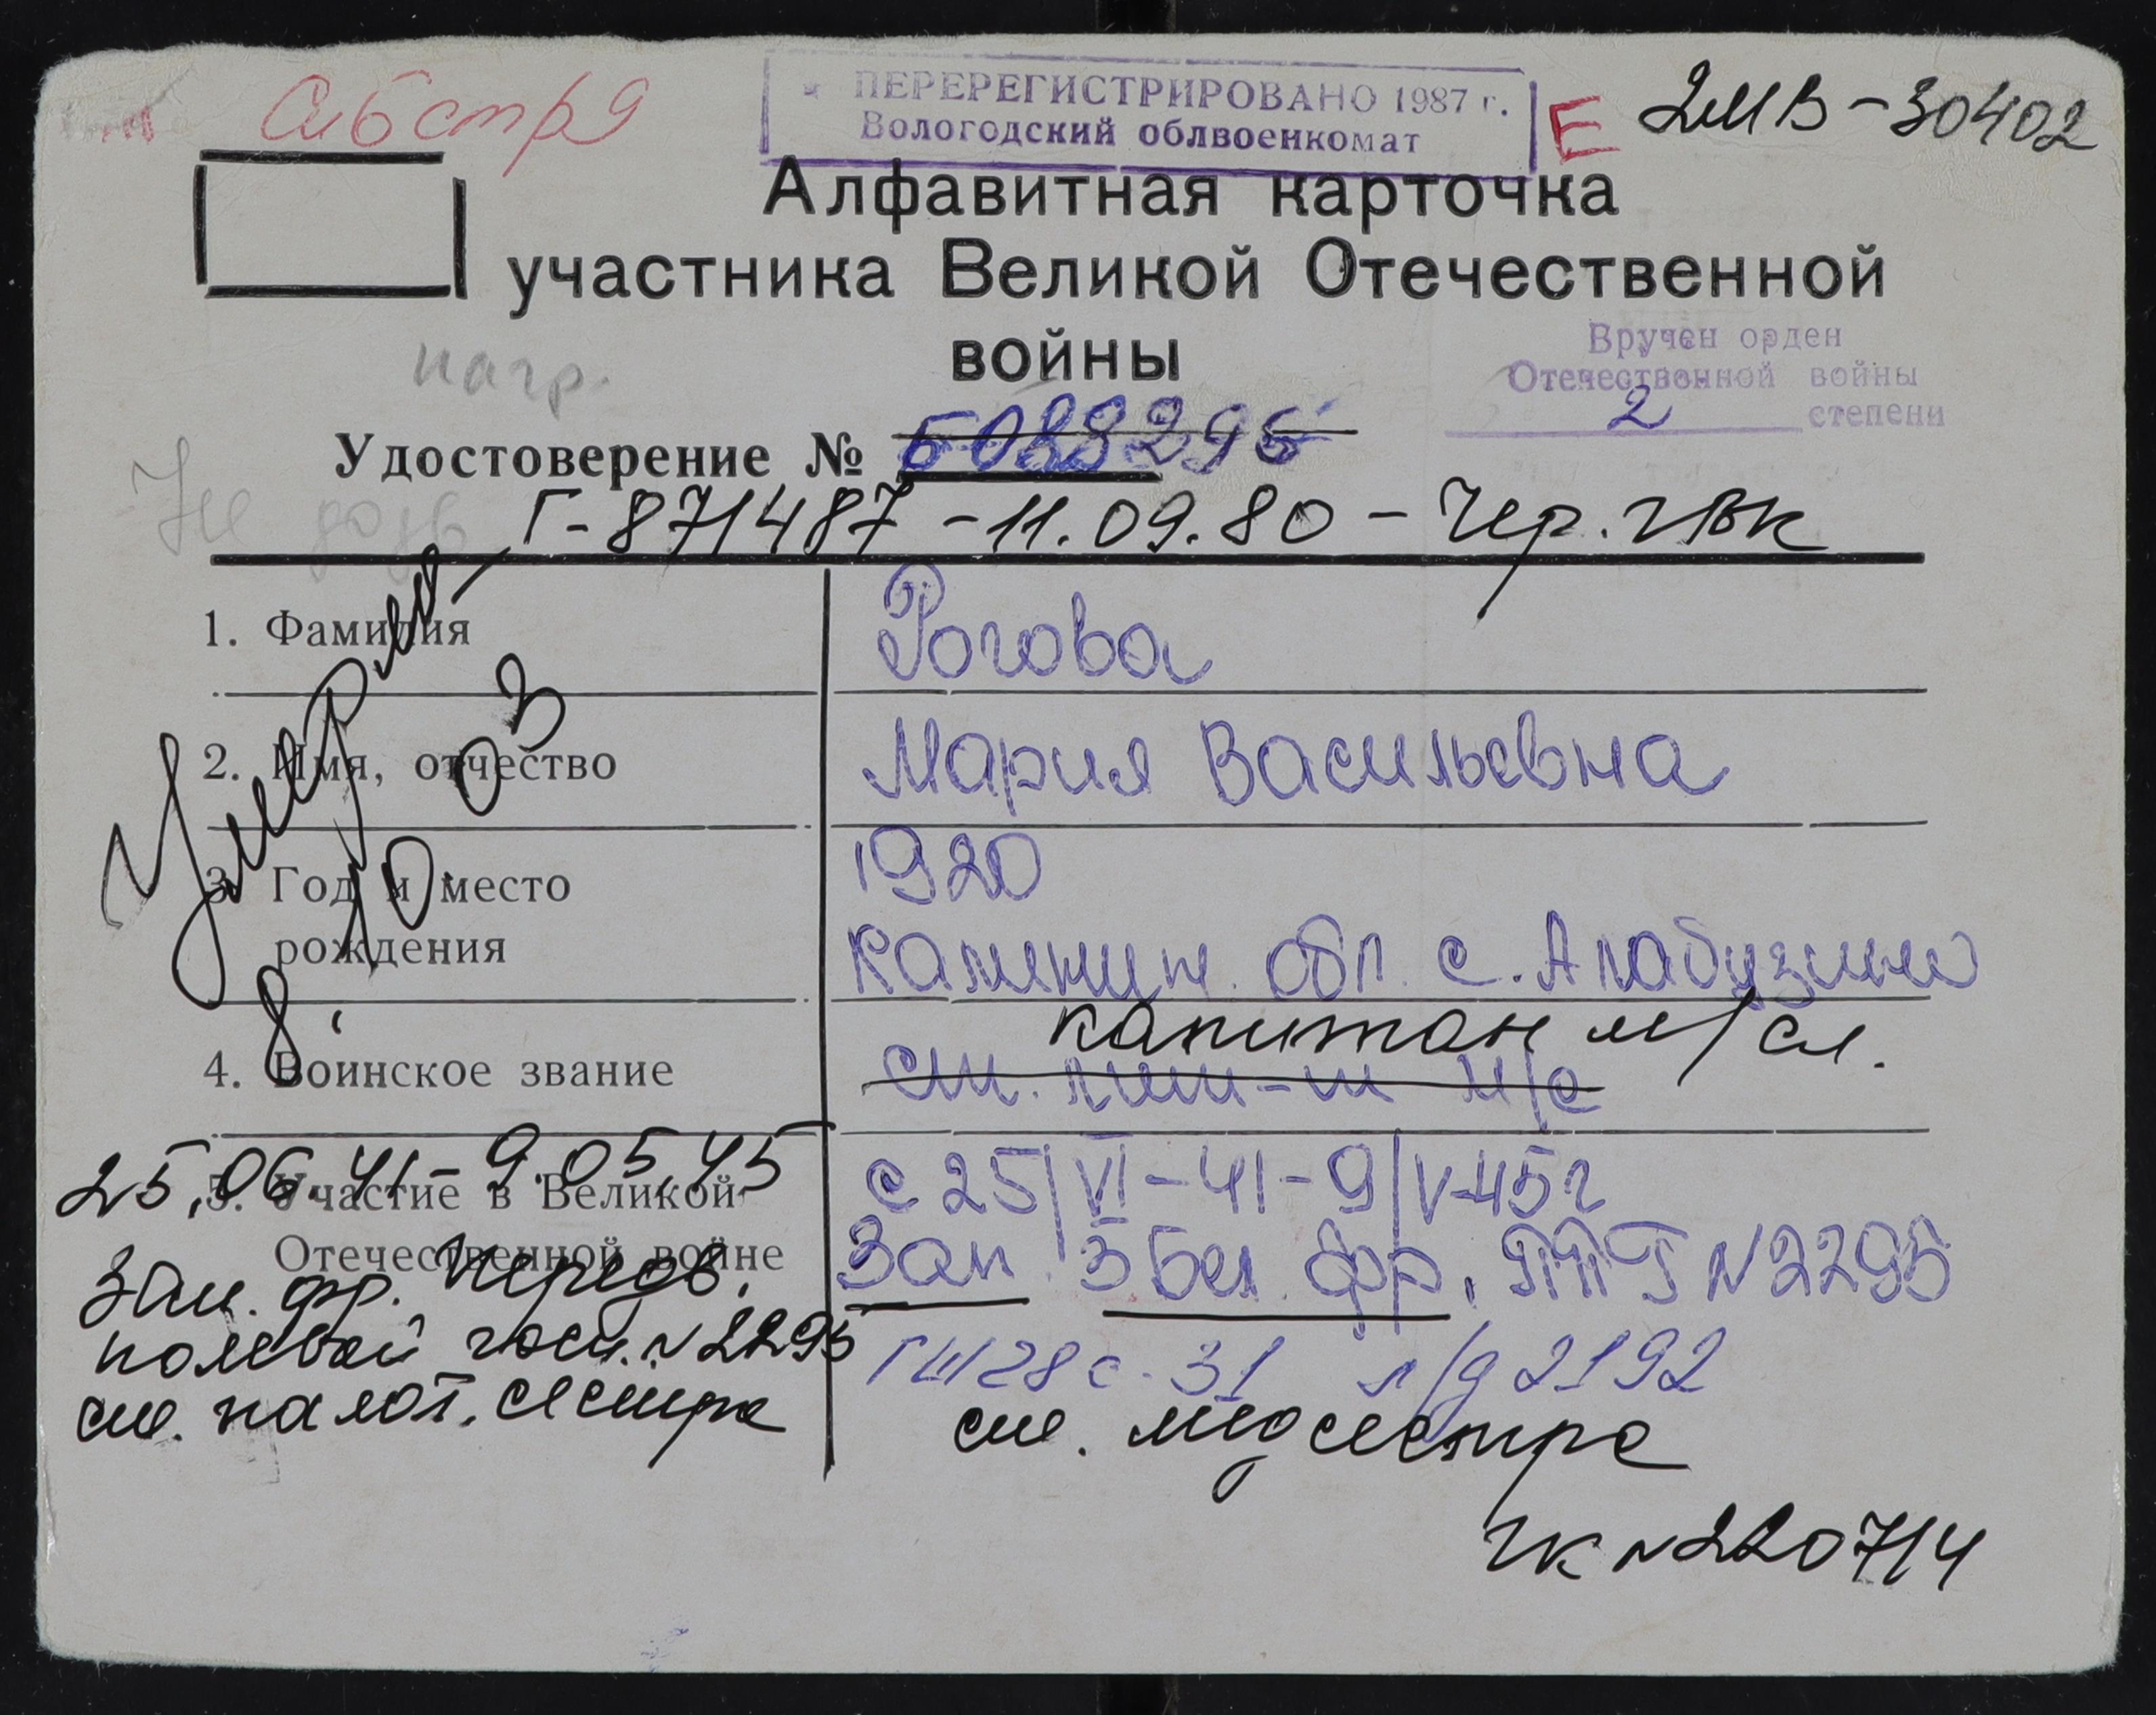 ПЕРЕРЕГИСТРИРОВАНО 1987 г.
Вологодский облвоенкомат
Е
2МВ-30402
Алфавитная карточка
участника Великой Отечественной
войны
нагр.
Вручен орден
Отечественной войны
2 степени
Удостоверение №
Г-871487-11.09.80-Чер. ГВК
1. Фамилия
Рогова
2. Имя, отчество
Мария Васильевна
3. Год и место
рождения
1920
Калинин. обл. с. Алабузино
4. Воинское звание
капитан м/сл.
ст. лейт-т м/с
Умерла
8. 10 03
5. Участие в Великой
Отечественной войне
с 25/VI-41-9/V-45г
Зап. 3 Бел. фр. ППГ N2295
ГШ 28 с. 31 л/д 2192
ст. медсестра
25.06.41-9.05.45
Зап. фр. Передв.
полевой госп. N2295
ст. палат. сестра
ГК N220714